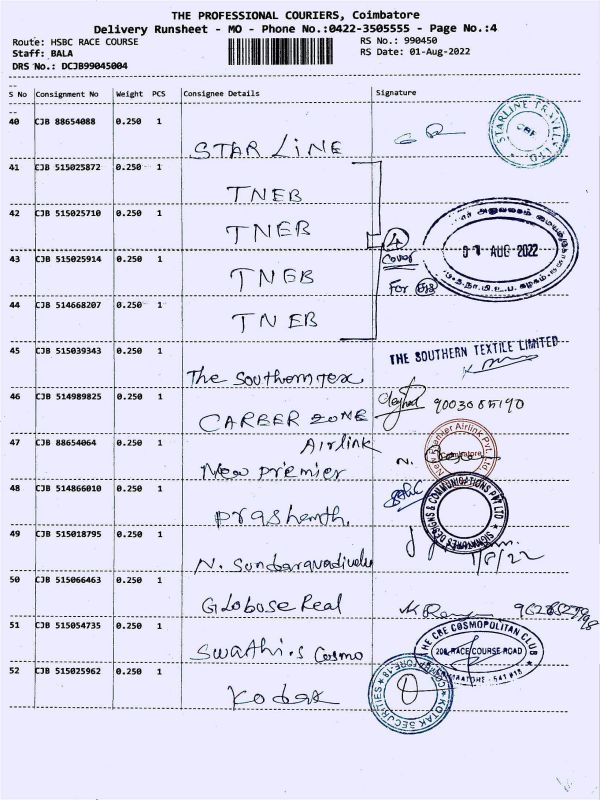 THE PROFESSIONAL COURIERS, Coimbatore
Delivery Runsheet - MO - Phone No.:0422-3505555 - Page No.:4
Route: HSBC RACE COURSE
RS No.: 990450
Staff: BALA
RS Date: 01-Aug-2022
DRS No.: DCJB99045004
S No Consignment No Weight PCS Consignee Details Signature
40 CJB 88654088 0.250 1
STAR LINE
STARLINE TRAVELS LTD
CBE
41 CJB 515025872 0.250 1
TNEB
42 CJB 515025710 0.250 1
TNEB
43 CJB 515025914 0.250 1
TNEB
4
Cover
For EB
01 AUG 2022
44 CJB 514668207 0.250 1
TNEB
45 CJB 515039343 0.250 1
The Southern Tex
THE SOUTHERN TEXTILE LIMITED
46 CJB 514989825 0.250 1
CAREER ZONE
47 CJB 88654064 0.250 1
Airlink
New Premier
New Premier Airlink Pvt. Ltd
Coimbatore
48 CJB 514866010 0.250 1
Prashanth
SIGNATURES DESIGNS & COMMUNICATIONS PVT LTD
49 CJB 515018795 0.250 1
N. Sundaravadivelu
1/8/22
50 CJB 515066463 0.250 1
Globose Real
51 CJB 515054735 0.250 1
Swathi.s Cosmo
THE CBE COSMOPOLITAN CLUB
208, RACE COURSE ROAD
COIMBATORE - 641 018
52 CJB 515025962 1
Kodak
KOTAK SECURITIES
COIMBATORE-18